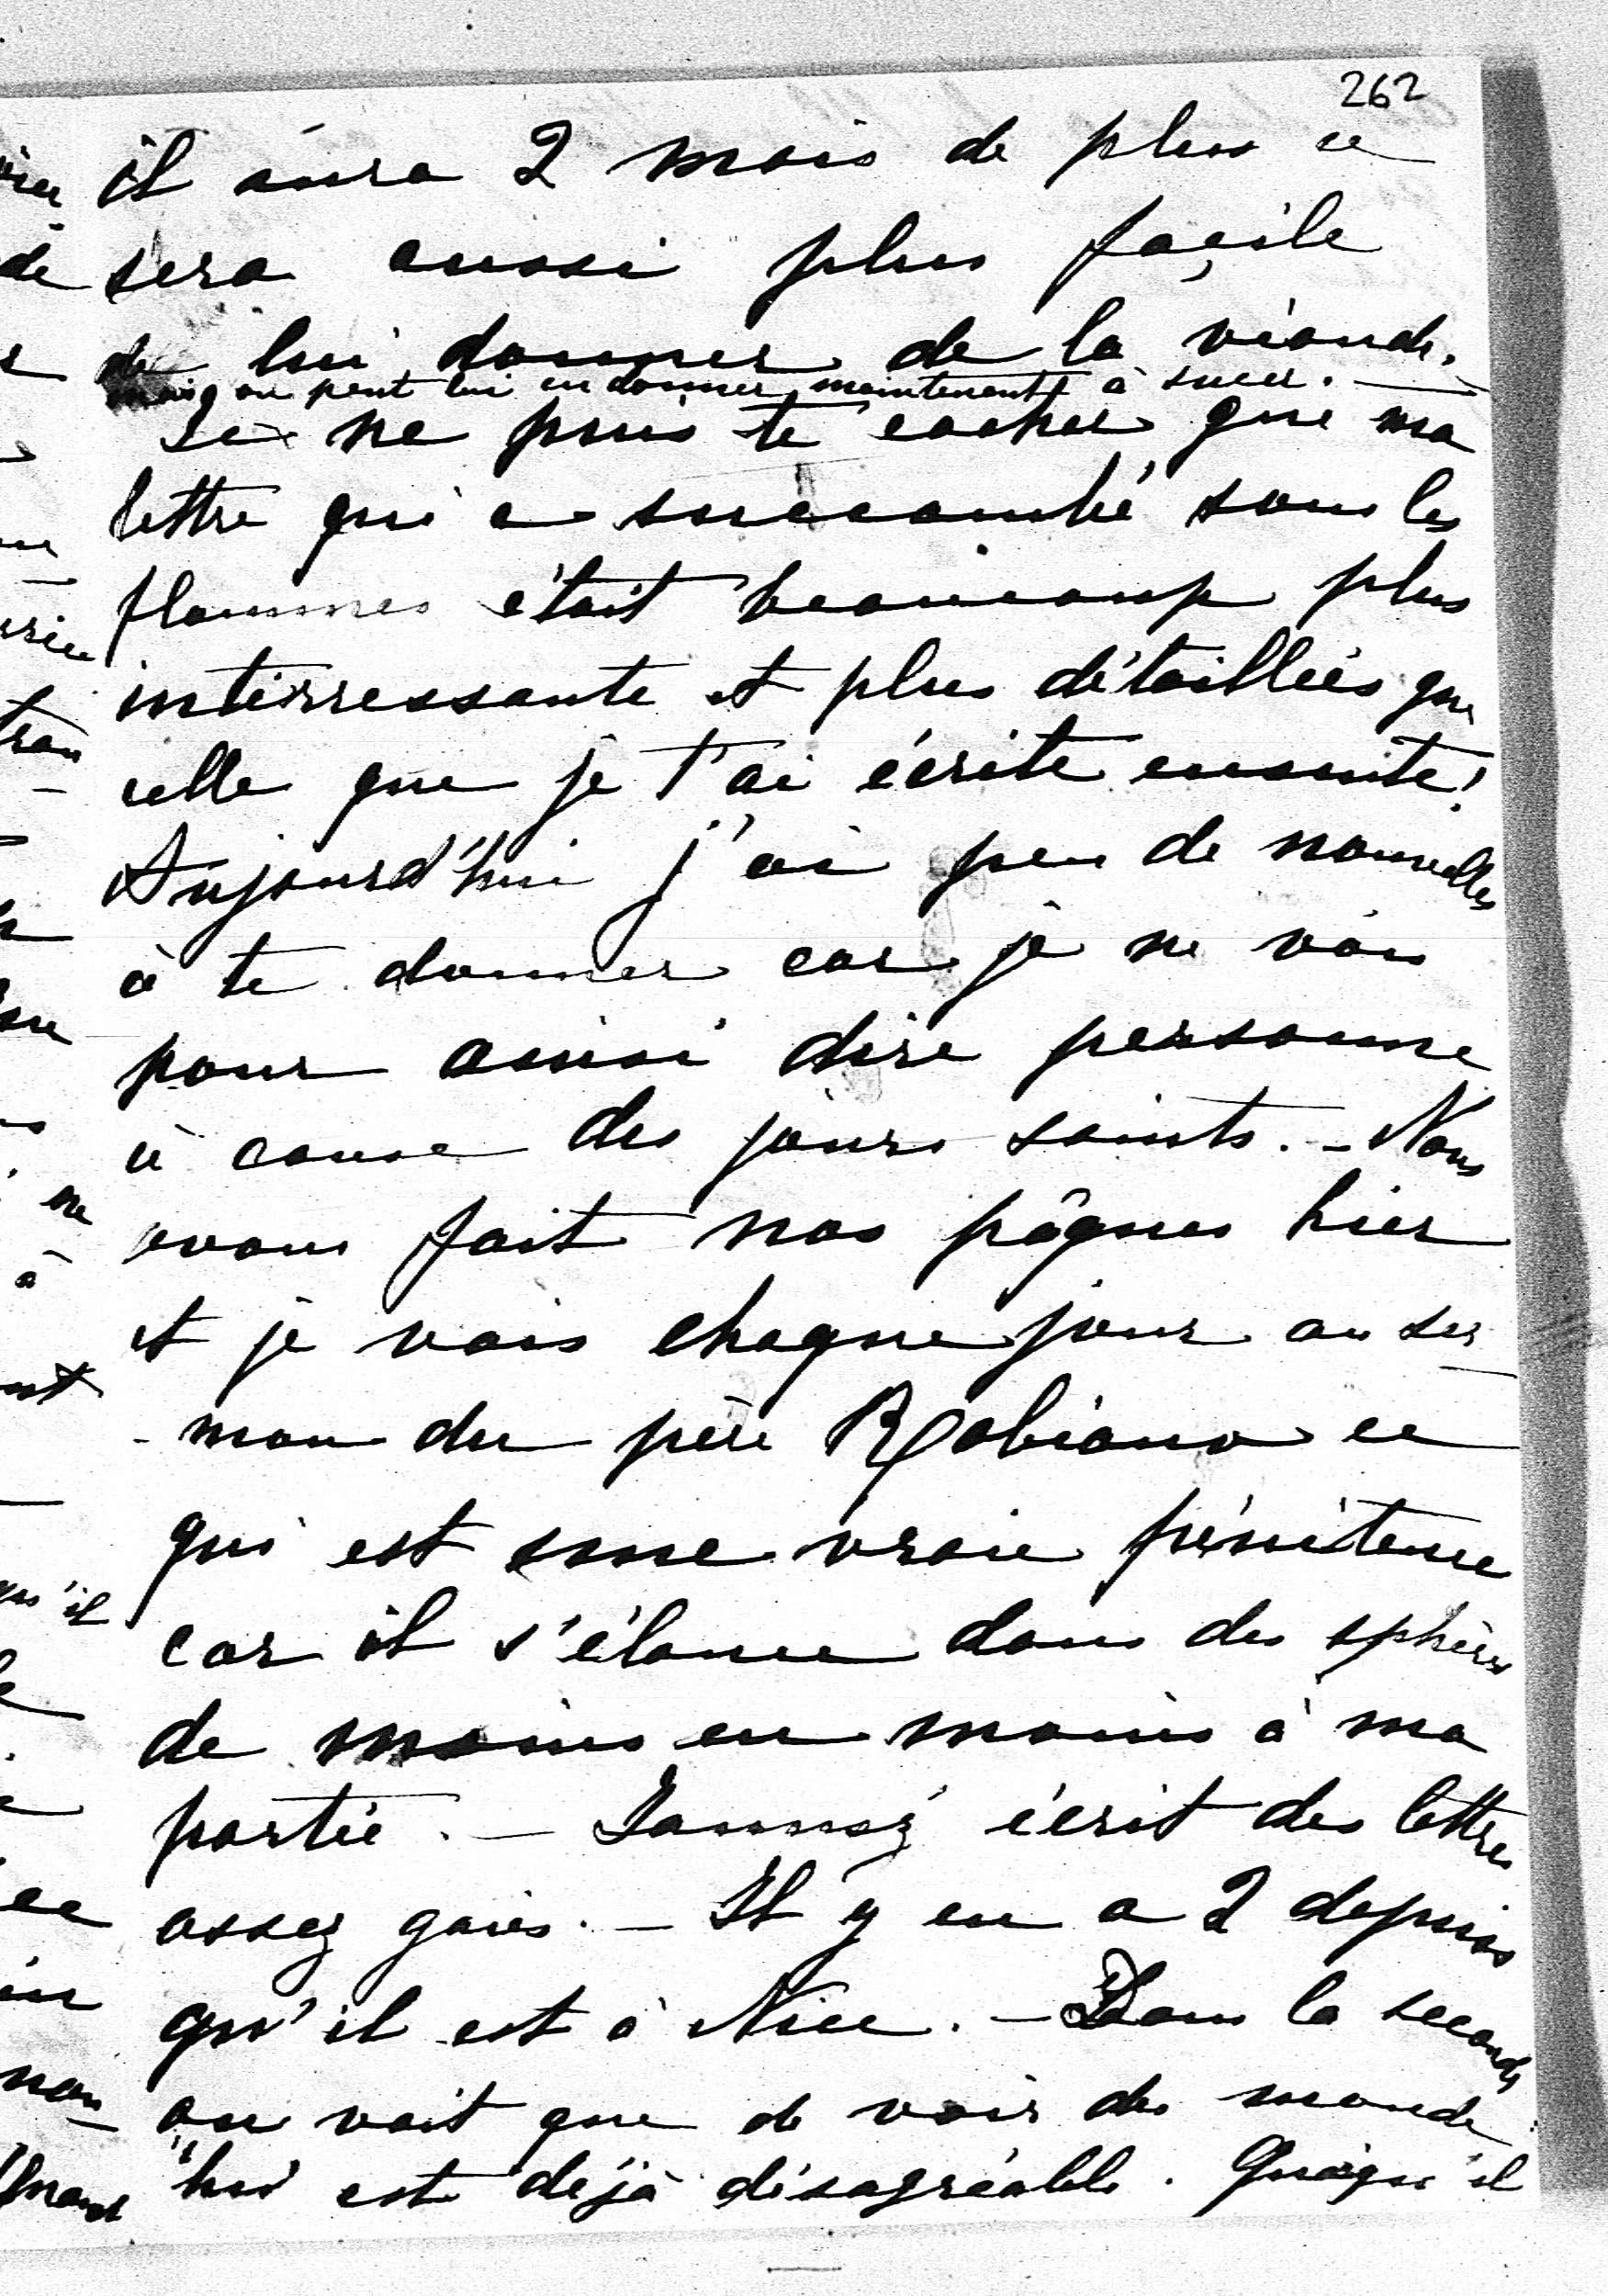 262
il aura 2 mois de plus ce
sera aussi plus façile
de lui donner de la viande.
mais on peut lui en donner maintenant à sucer. —
Je ne puis te cacher que ma
lettre qui a succombé sous les
flammes était beaucoup plus
intérressante et plus détaillées que
celle que je t'ai écrite ensuite!
Aujourd'hui j'ai peu de nouvelles
à te donner car je ne vois
pour ainsi dire personne
à cause des jours saints. - Nous
avons fait nos pâques hier
et je vais chaque jour au ser-
-mon du père Robiano ce
qui est une vraie pénitence
car il s'élance dans des sphères
de moins en moins à ma
portée. — écrit des lettres
assez gaies. — Il y en a 2 depuis
qu'il est à Nice. — Dans la seconde
on voit que de voir du monde
lui est déjà désagréable. Quoiqu'il